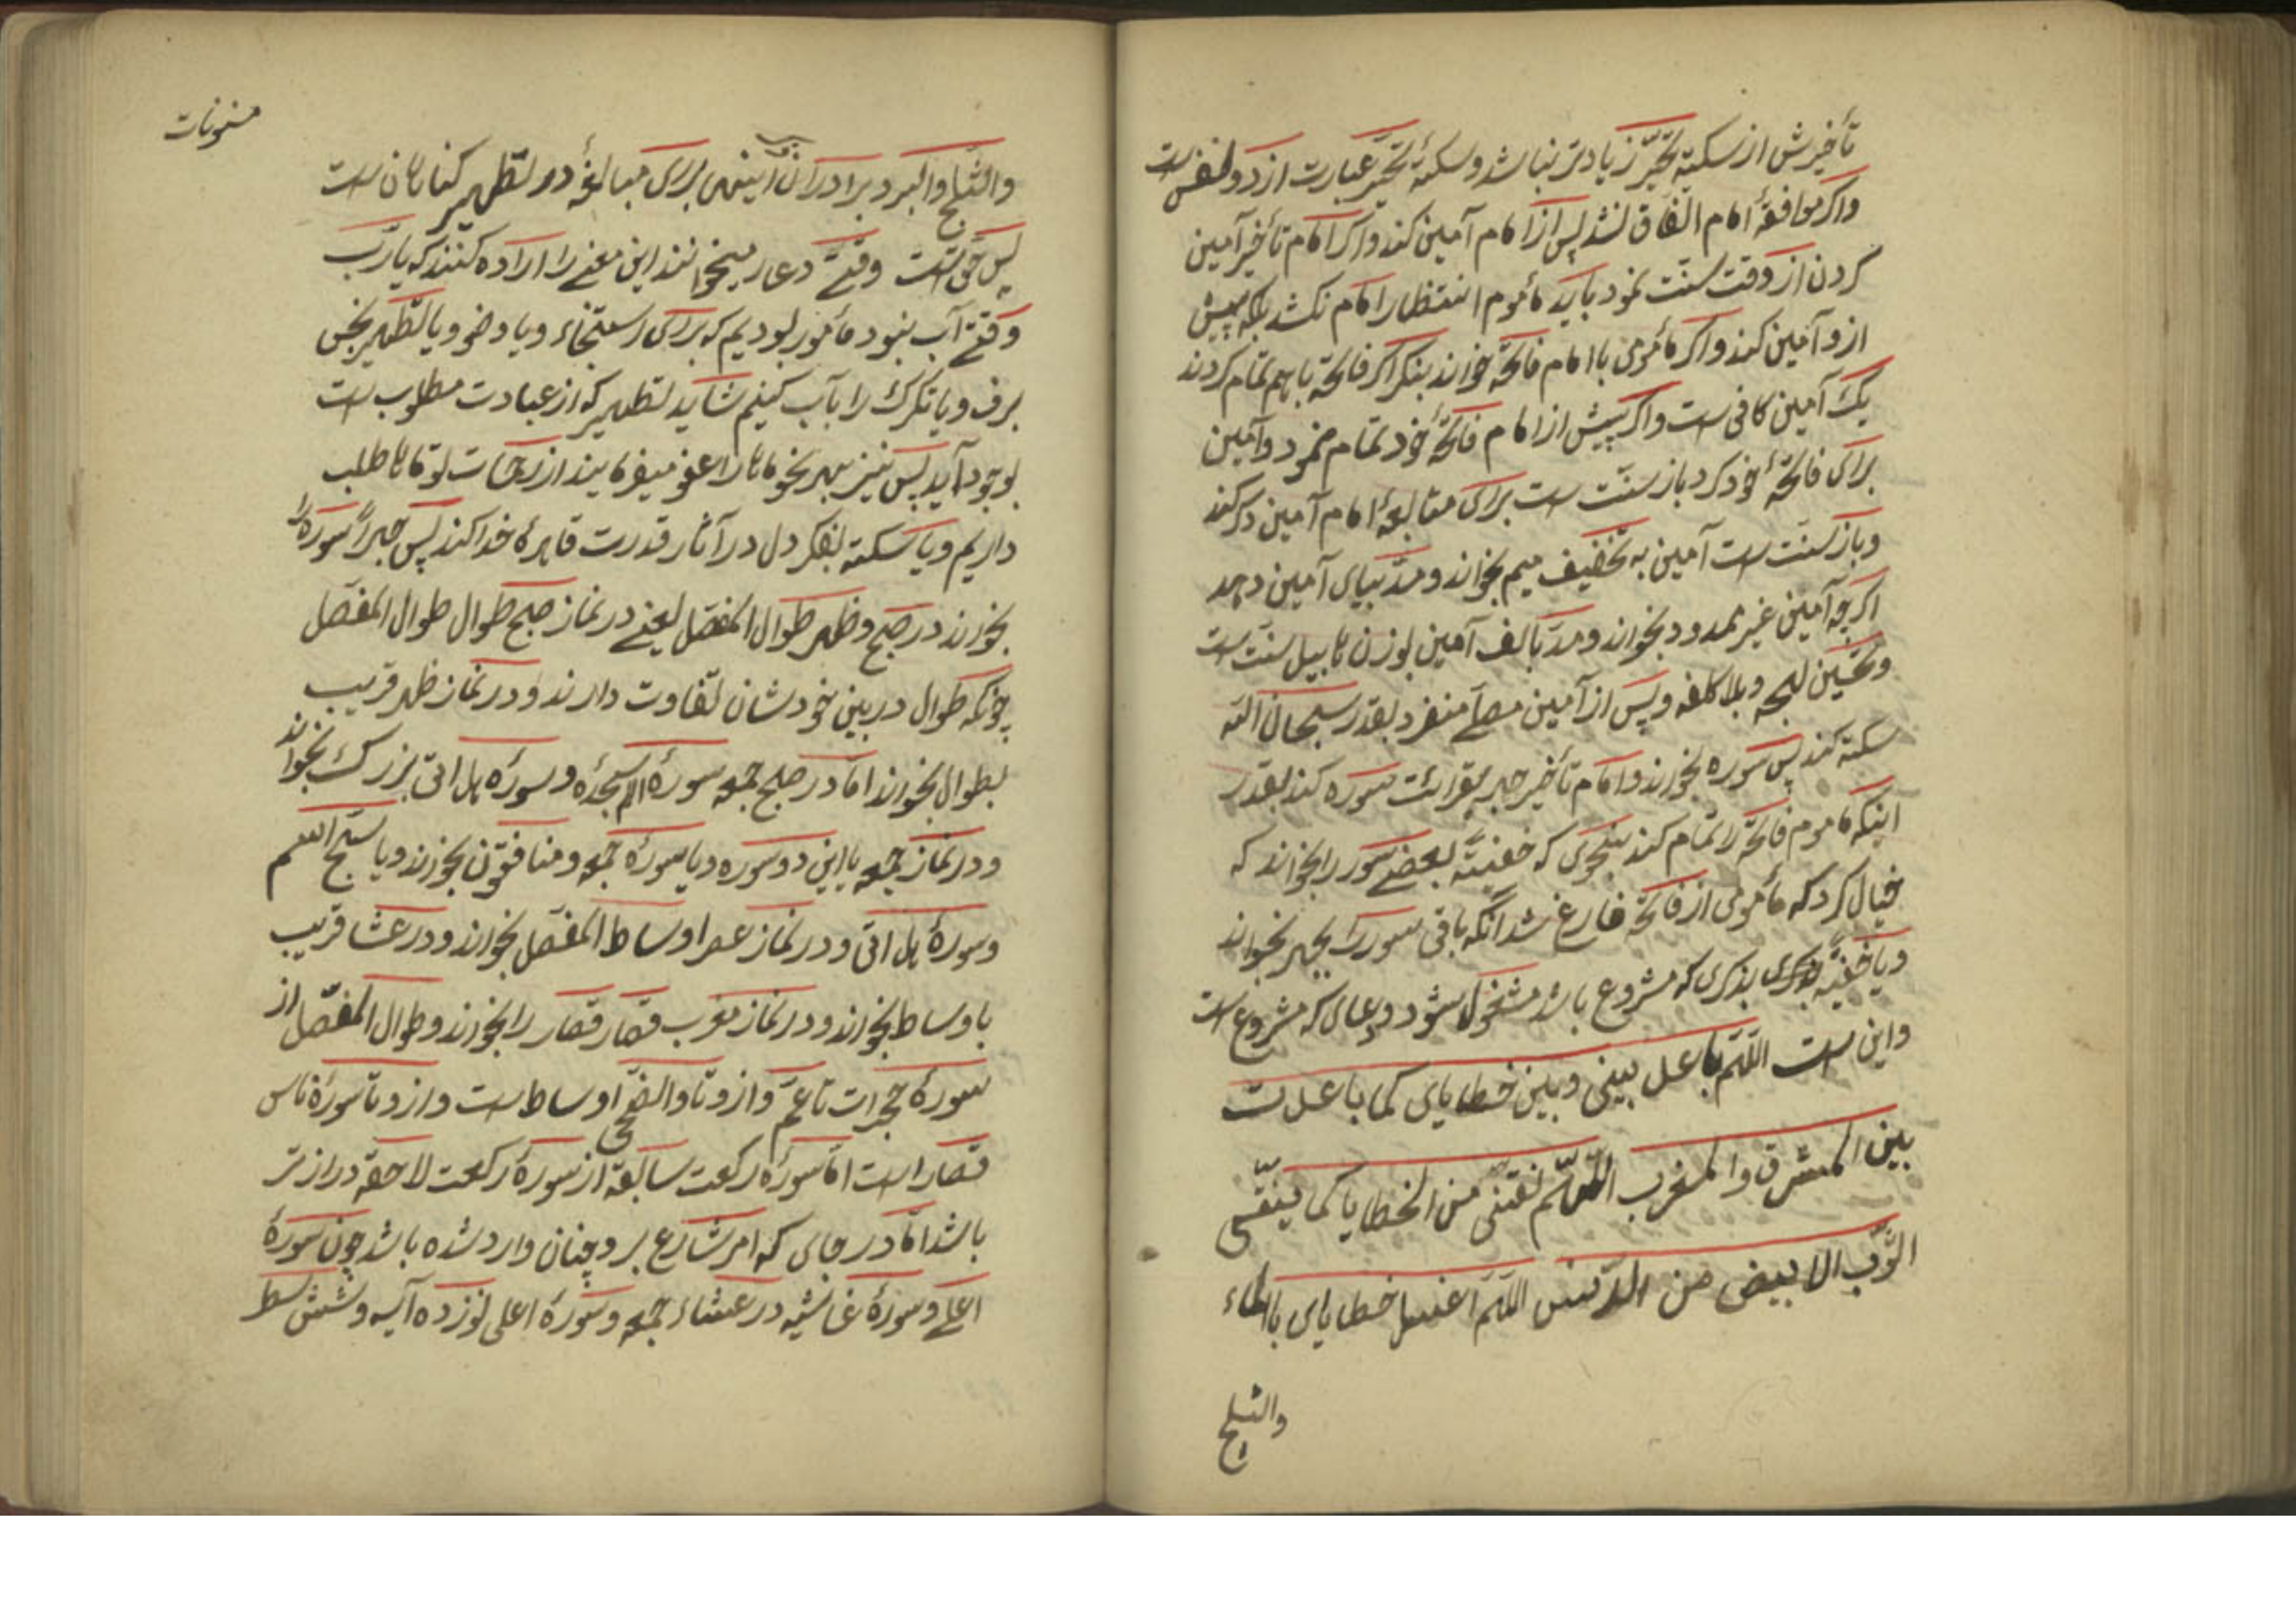 تأخیرش از سکتهٔ تحیّر زیادتر نباشد و سکتهٔ تحیّر عبارت از دو نفس است
و اکر موافقهٔ امام اتفاق نشد پس از امام آمین کند و اکر امام تأخیر آمین
کردن از وقت سنّت نمود باید مأموم انتظار امام نکشد بلکه پیش
ازو آمین کند و اکر مأمومی با امام فاتحه خواند بنکر اکر فاتحه باهم تمام کردند
یک آمین کافی است و اکر پیش از امام فاتحهٔ خود تمام نمود و آمین
برای فاتحهٔ خود کرد باز سنّت است برای متابعهٔ امام آمین دکر کند
و باز سنّت است آمین به تخفیف میم بخواند و مدّ بیای آمین دهد
اکرچه آمین غیر ممدود بخواند و مدّ بالف آمین بوزن هابیل سنّت است
و تحسین لهجه و بلا کلفه و پس از آمین مصلّے منفرد بقدر سبحان الله
سکته کند پس سوره بخواند و امام تأخیر جهر بقرائت سوره کند بقدر
اینکه ماموم فاتحه را تمام کند بنحوی که خفیتهً بعضے سور را بخواند که
خیال کرد که مأمومی از فاتحه فارغ شد آنکه باقی سور را بجهر بخواند
و یا خفیهً بذکری که مشروع باشد مشغول شود و دعای که مشروع است
و این است اللّهم باعد بینی و بین خطایای کما باعدت
بین المشرق والمغرب اللّهم نقنی من الخطایا کما ینقّی
الثّوب الابیض من الدّنس اللّهم اغسل خطایای بالماء
والثلج
مسنونات
والثلج والبرد برادران اینهمه برای مبالغهٔ در تطهیر کناهان است
پس حق است وقتے دعا را میخوانند این معنے را اراده کنند که یا ربّ
وقتے آب نبود مأمور بودیم که برای استنجاء و یا وضو و یا تطهیر نجس
برف و یا تکرک را بآب کنیم شاید تطهیر که از عبادت مطلوب است
بوجود آید پس نیز بهر نحو ما را عفو میفرمایند از رحمات تو ماها طلب
داریم و یا سکته بفکر دل در آثار قدرت قاهرهٔ خدا کند پس جهراً سوره را
بخواند در صبح و ظهر طوال المفصّل یعنے در نماز صبح طوال طوال المفصّل
چونکه طوال در بین خودشان تفاوت دارند و در نماز ظهر قریب
بطوال بخواند امّا در صبح جمعه سورهٔ الم سجده و سوره هل اتی بزرک بخواند
و در نماز جمعه یا این دو سوره و یا سورهٔ جمعه و منافقون بخواند و یا سبّح اسم
و سورهٔ هل اتی و در نماز عصر اوساط المفصّل بخواند و در عشا قریب
باوساط بخواند و در نماز مغرب قصار قصار را بخواند و طوال المفصّل از
سورهٔ حجرات تا عمّ و ازو تا والضّحی اوساط است و ازو تا سورهٔ ناس
قصار است امّا سورهٔ رکعت سابقه از سورهٔ رکعت لاحقه درازتر
باشد امّا در جای که امر شارع برو چنان وارد شده باشد چون سورهٔ
اعلے و سورهٔ غاشیه در عشاء جمعه و سورهٔ اعلی نوزده آیه و شش سطر